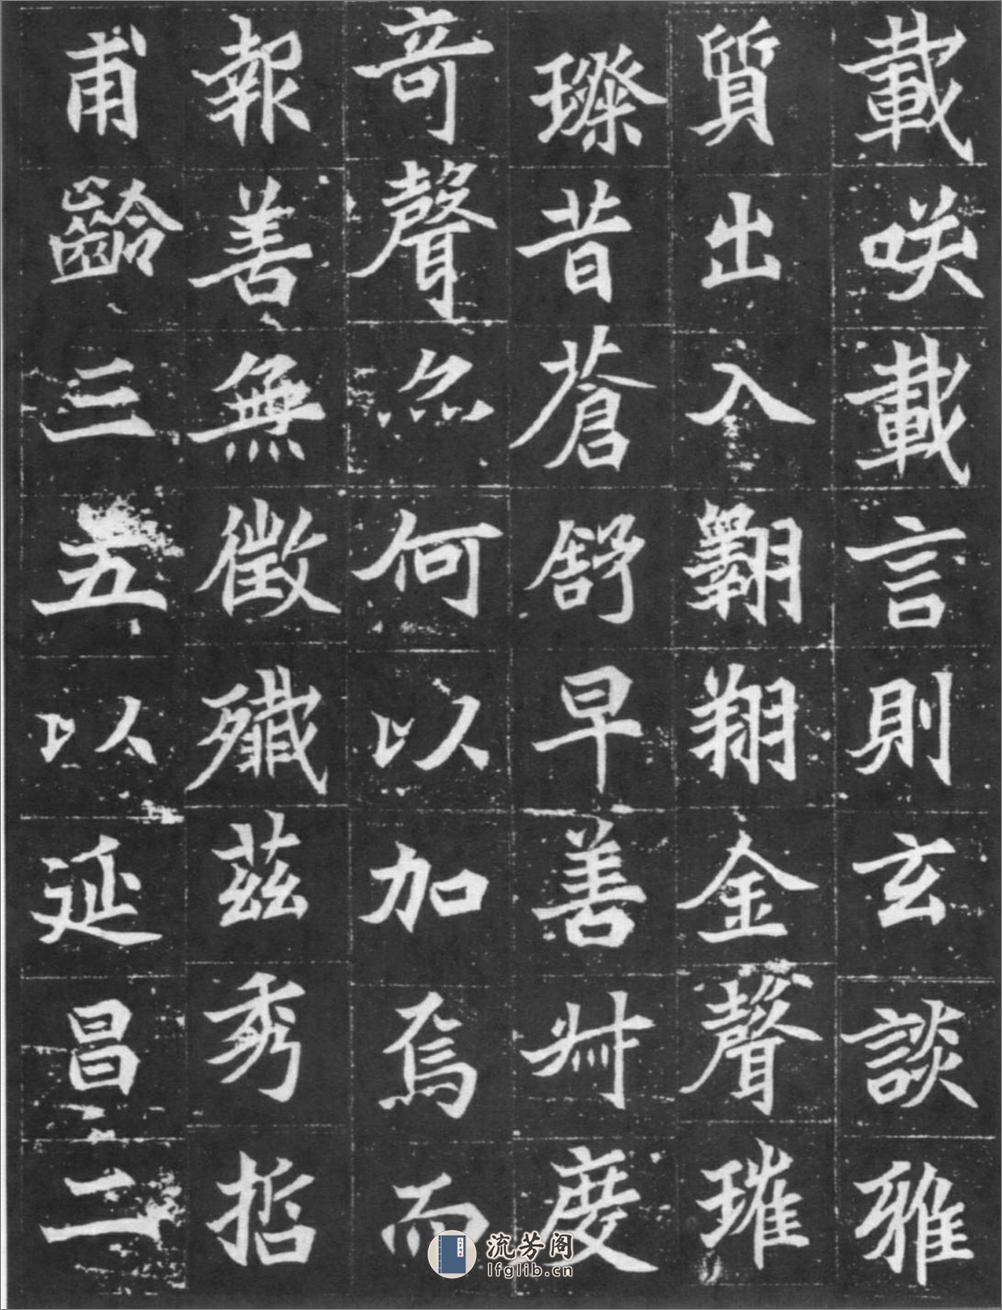 載咲載言則玄談雅
質出入翱翔金聲璀
璨昔蒼舒早善叔度
竒聲亦何以加焉而
報善無徵殲茲秀哲
甫齡三五以延昌二
流芳阁
lfglib.cn